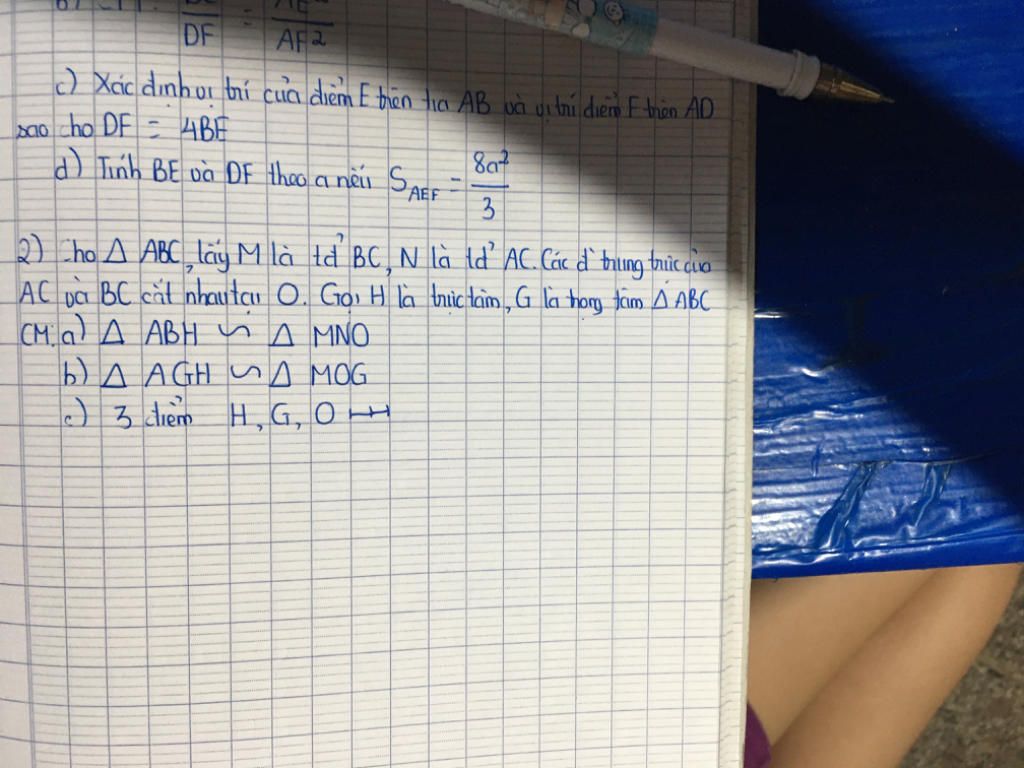 DF = AF²
c) Xác định vị trí của điểm E trên tia AB và vị trí điểm F trên AD
sao cho DF = 4BE
d) Tính BE và DF theo a nếu S_AEF = 8a²/3
2) Cho Δ ABC, lấy M là tđ' BC, N là tđ' AC. Các đ' trung trực của
AC và BC cắt nhau tại O. Gọi H là trực tâm, G là trọng tâm Δ ABC
CM: a) Δ ABH ∽ Δ MNO
b) Δ AGH ∽ Δ MOG
c) 3 điểm H, G, O